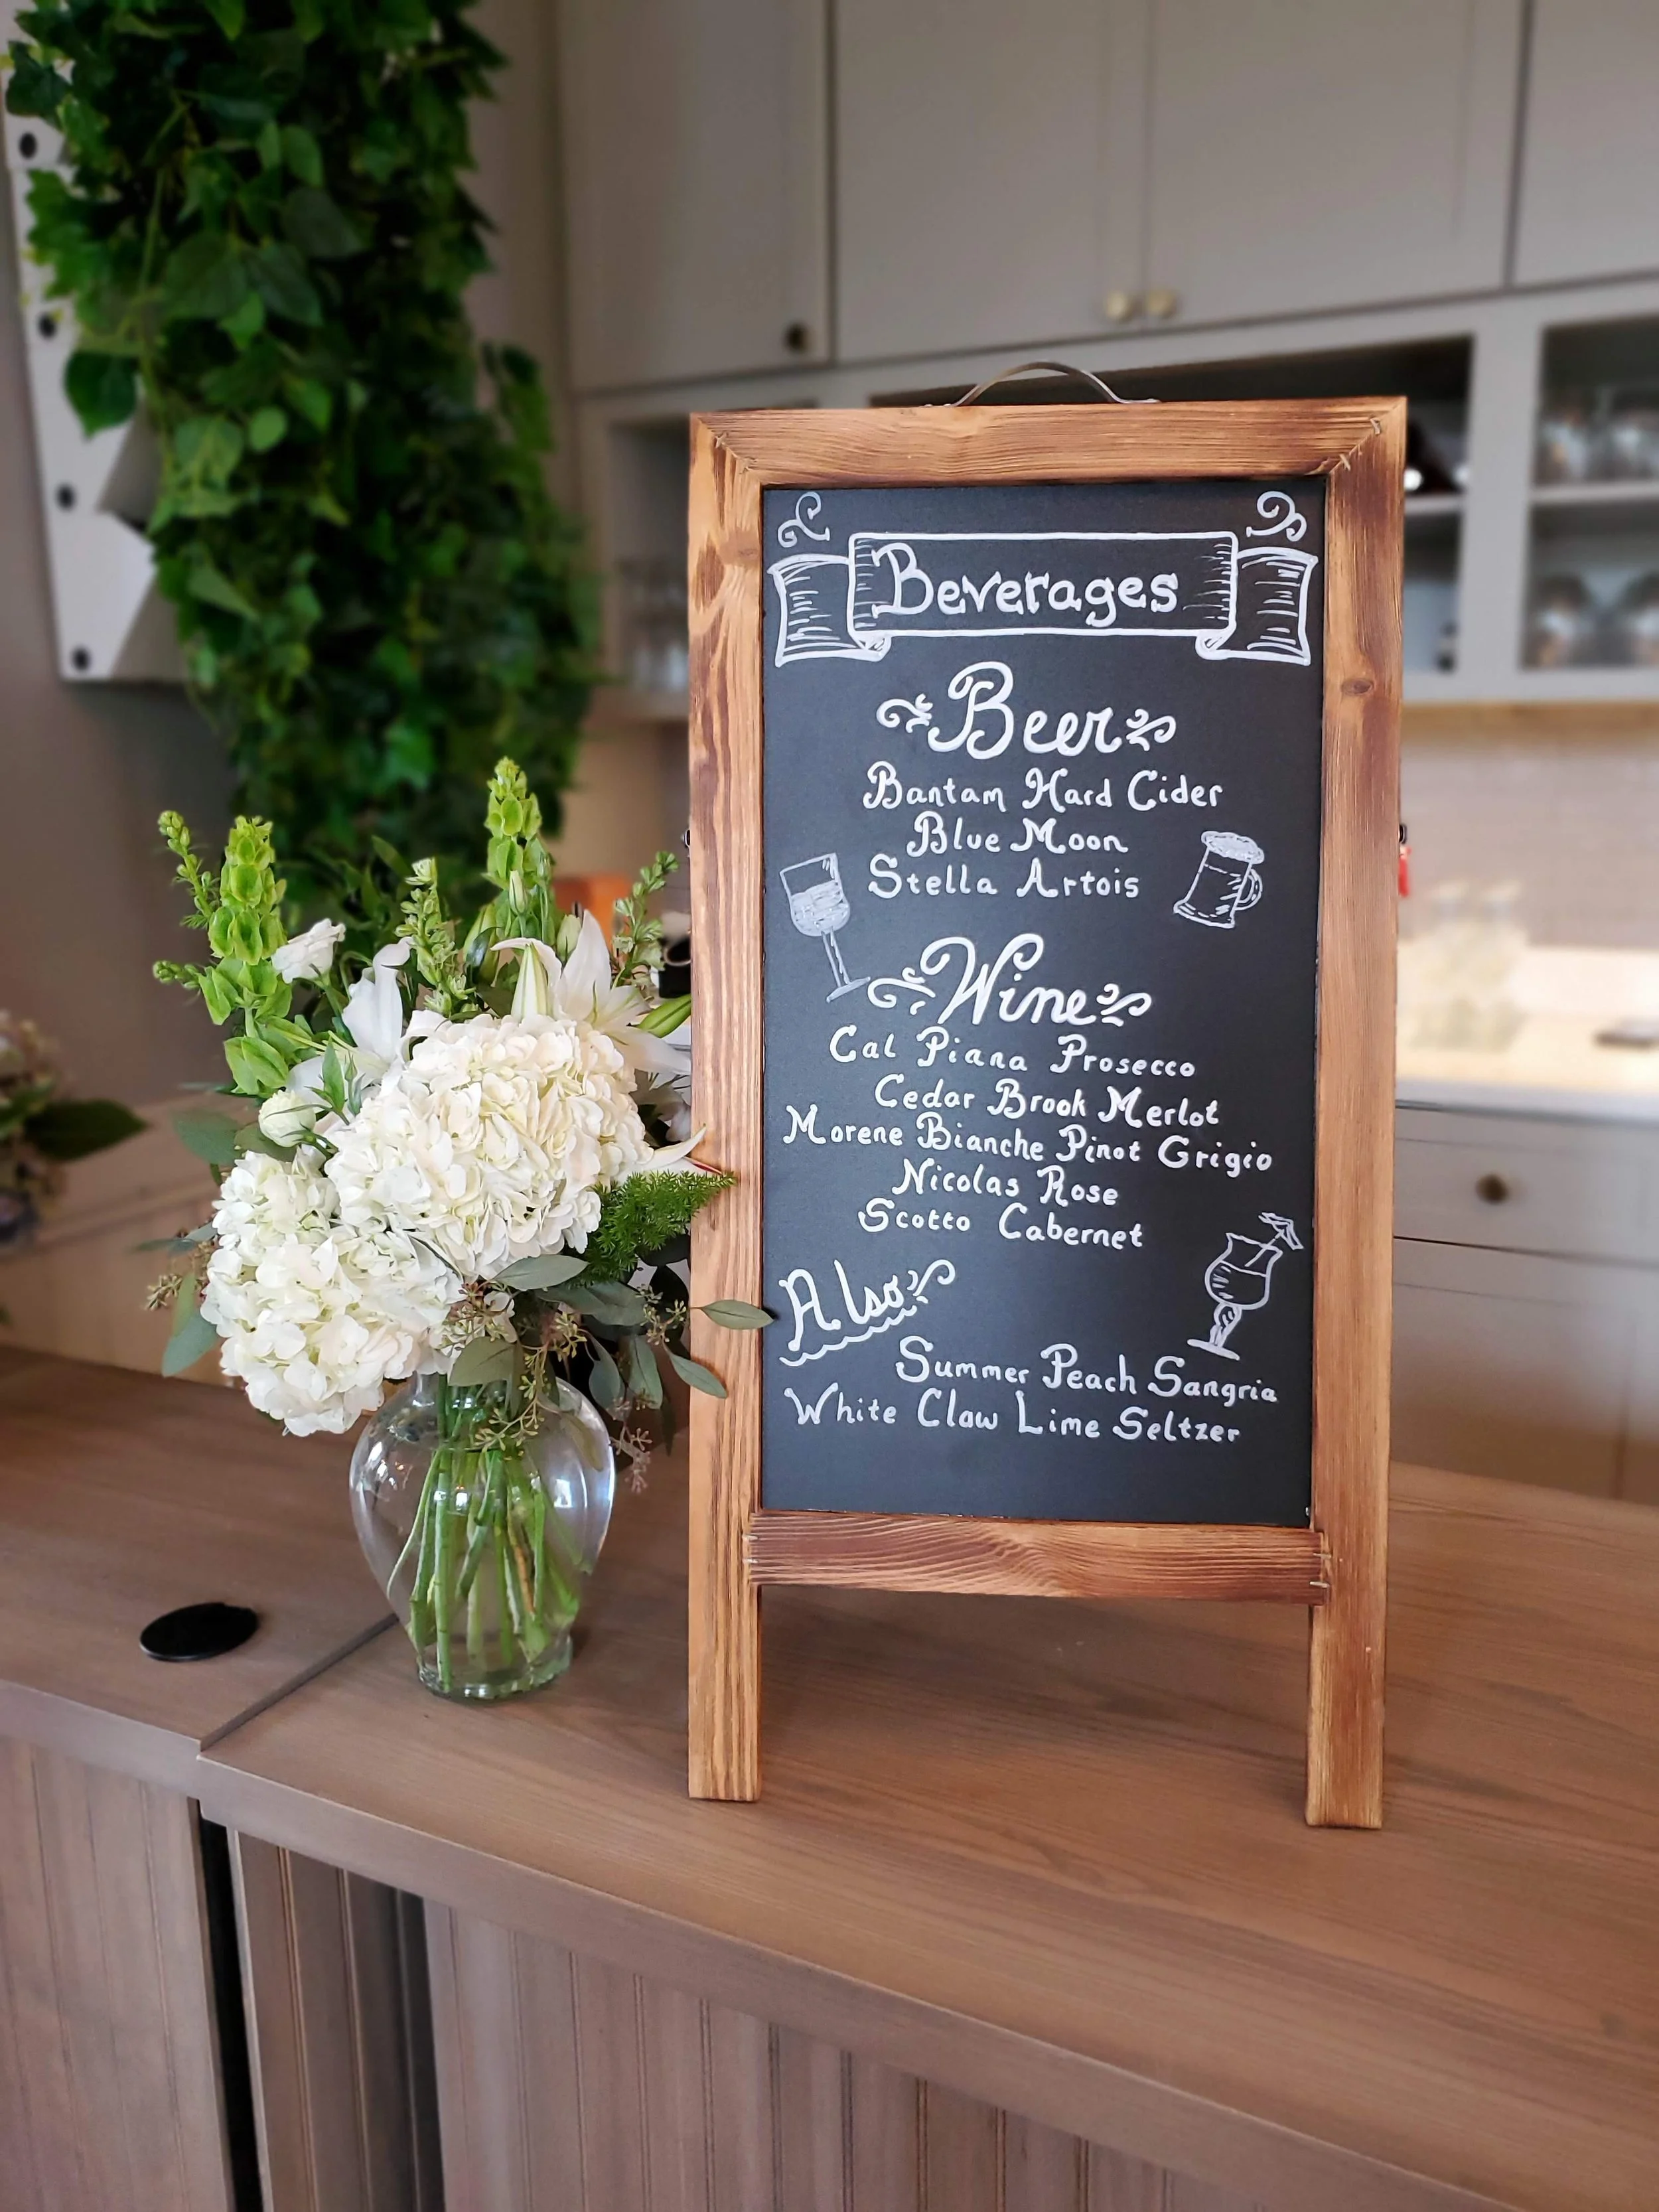 Beverages
Beer
Bantam Hard Cider
Blue Moon
Stella Artois
Wine
Cal Piana Prosecco
Cedar Brook Merlot
Morene Bianche Pinot Grigio
Nicolas Rose
Scotto Cabernet
Also
Summer Peach Sangria
White Claw Lime Seltzer